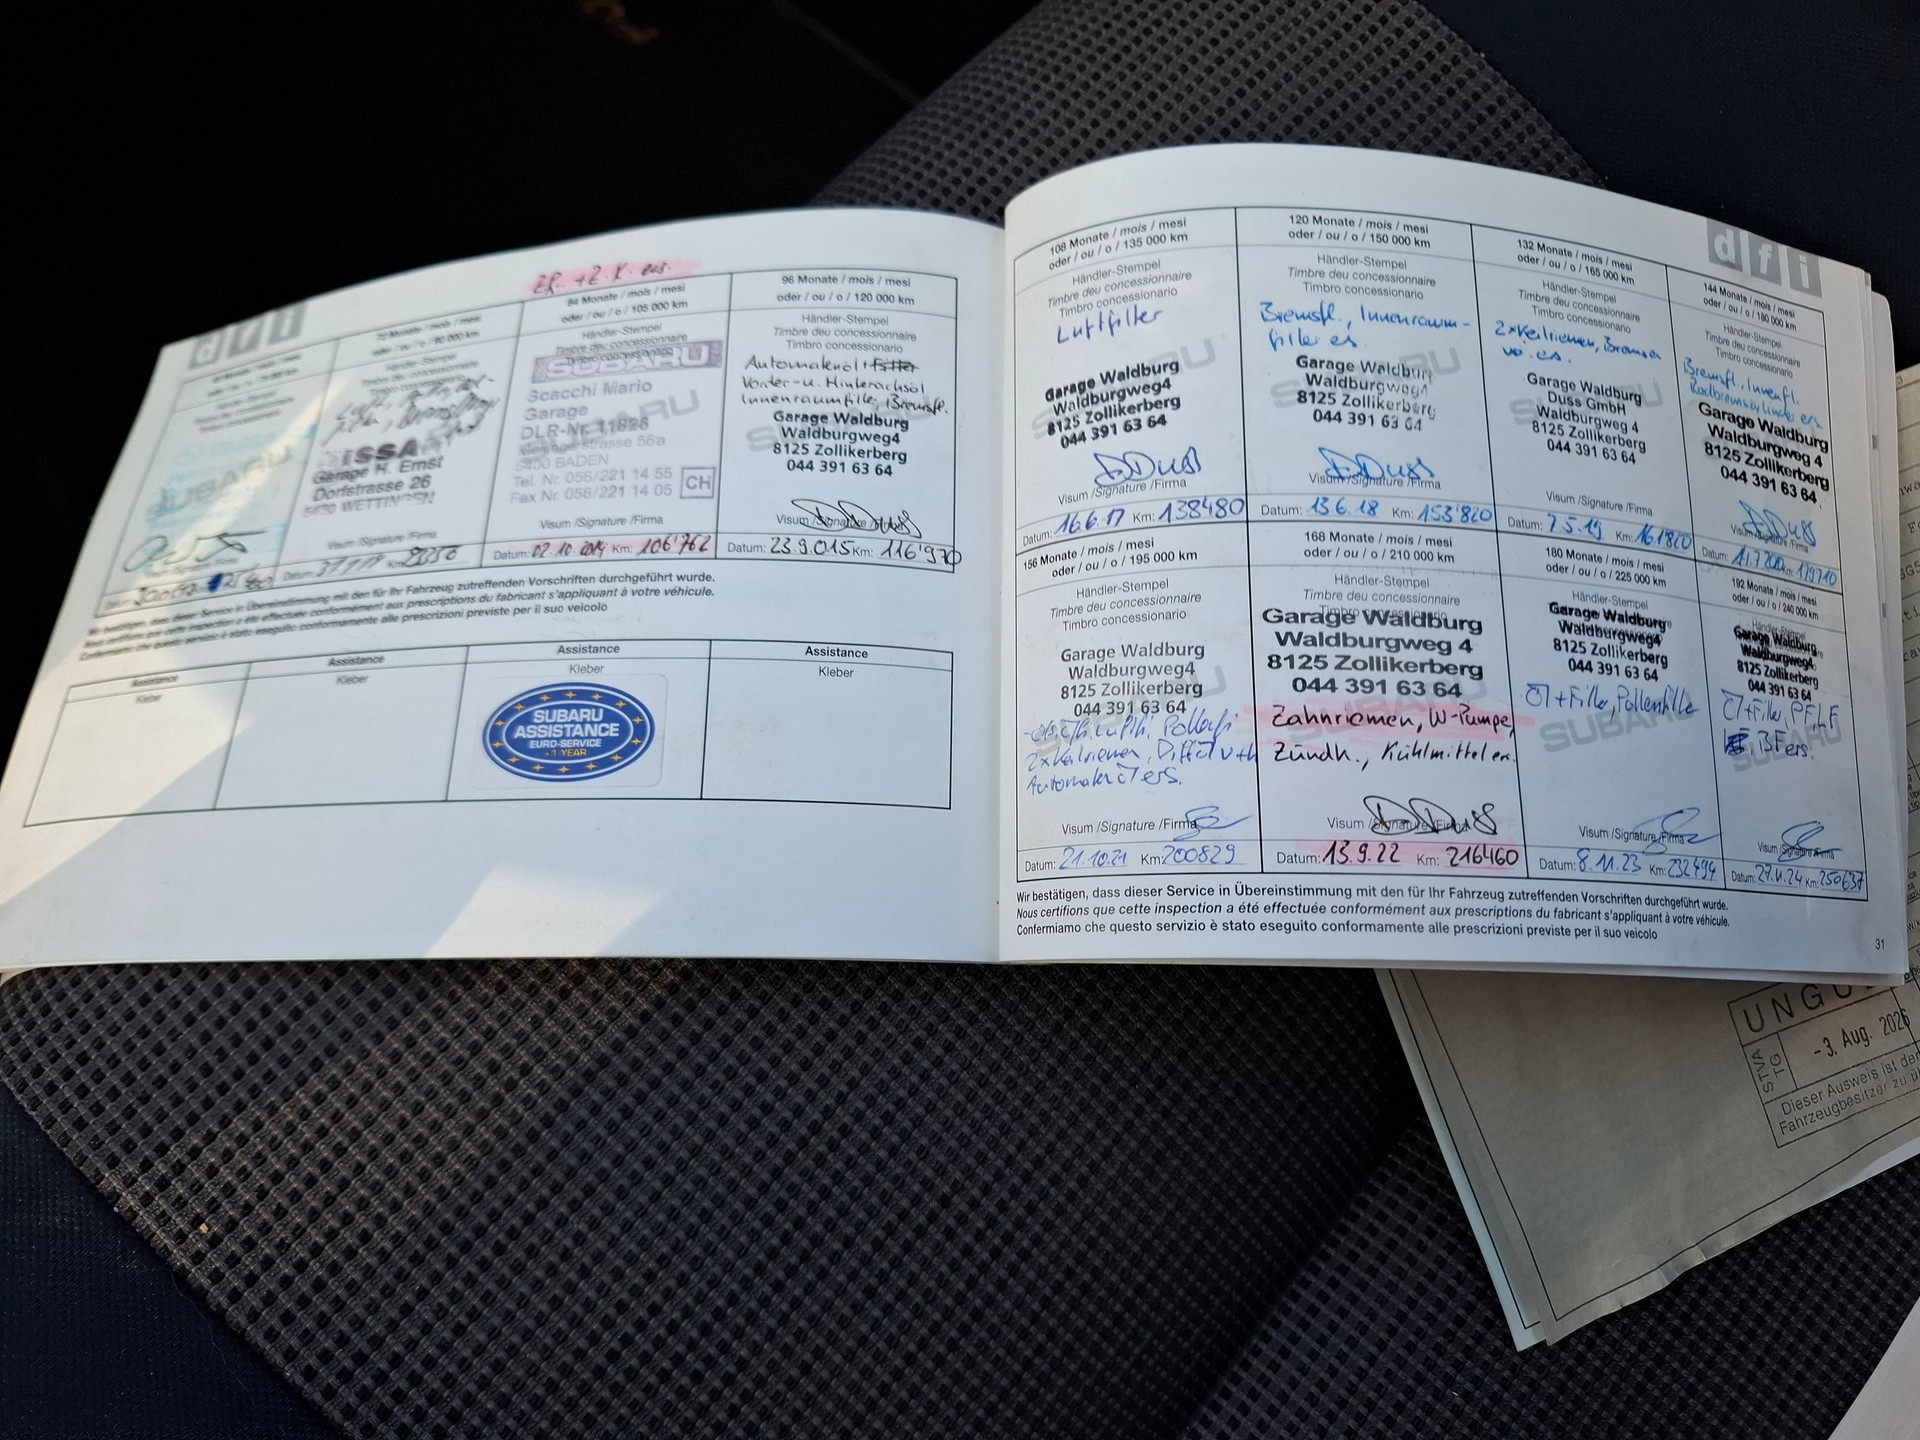 dfi
ZR. + Z. K. ers.
84 Monate / mois / mesi
oder / ou / o / 105 000 km
Händler-Stempel
Timbre deu concessionnaire
Timbro concessionario
SUBARU
Scacchi Mario
Garage
DLR-Nr. 11826
5400 BADEN
Tel. Nr. 056/221 14 55
Fax Nr. 056/221 14 05
CH
Visum /Signature /Firma
Datum: 02.10.2014 Km: 106'762
96 Monate / mois / mesi
oder / ou / o / 120 000 km
Händler-Stempel
Timbre deu concessionnaire
Timbro concessionario
Automatenöl + Filter
Vorder- u. Hinterachsöl
Innenraumfilter, Bremsfl.
Garage Waldburg
Waldburgweg4
8125 Zollikerberg
044 391 63 64
Visum /Signature /Firma
Datum: 23.9.015 Km: 116'970
Garage H. Ernst
Dorfstrasse 26
5430 WETTINGEN
Visum /Signature /Firma
Wir bestätigen, dass dieser Service in Übereinstimmung mit den für Ihr Fahrzeug zutreffenden Vorschriften durchgeführt wurde.
Nous certifions que cette inspection a été effectuée conformément aux prescriptions du fabricant s'appliquant à votre véhicule.
Confermiamo che questo servizio è stato eseguito conformamente alle prescrizioni previste per il suo veicolo
Assistance
Kleber
Assistance
Kleber
Assistance
Kleber
SUBARU
ASSISTANCE
EURO-SERVICE
+1 YEAR
Assistance
Kleber
dfi
108 Monate / mois / mesi
oder / ou / o / 135 000 km
Händler-Stempel
Timbre deu concessionnaire
Timbro concessionario
Luftfilter
Garage Waldburg
Waldburgweg4
8125 Zollikerberg
044 391 63 64
Visum /Signature /Firma
Datum: 16.6.17 Km: 138480
120 Monate / mois / mesi
oder / ou / o / 150 000 km
Händler-Stempel
Timbre deu concessionnaire
Timbro concessionario
Bremsfl., Innenraum-
filter es.
Garage Waldburg
Waldburgweg4
8125 Zollikerberg
044 391 63 64
Visum /Signature /Firma
Datum: 13.6.18 Km: 153'820
132 Monate / mois / mesi
oder / ou / o / 165 000 km
Händler-Stempel
Timbre deu concessionnaire
Timbro concessionario
2xKeilriemen, Bremsen
vo. es.
Garage Waldburg
Duss GmbH
Waldburgweg 4
8125 Zollikerberg
044 391 63 64
Visum /Signature /Firma
Datum: 7.5.19 Km: 161820
144 Monate / mois / mesi
oder / ou / o / 180 000 km
Händler-Stempel
Timbre deu concessionnaire
Timbro concessionario
Bremsfl., Innenfi.
Radbremszylinder ers
Garage Waldburg
Waldburgweg 4
8125 Zollikerberg
044 391 63 64
Visum /Signature /Firma
Datum: Km: 179710
156 Monate / mois / mesi
oder / ou / o / 195 000 km
Händler-Stempel
Timbre deu concessionnaire
Timbro concessionario
Garage Waldburg
Waldburgweg4
8125 Zollikerberg
044 391 63 64
2xKeilriemen,
Visum /Signature /Firma
Datum: 21.10.21 Km: 200829
168 Monate / mois / mesi
oder / ou / o / 210 000 km
Händler-Stempel
Timbre deu concessionnaire
Timbro concessionario
Garage Waldburg
Waldburgweg 4
8125 Zollikerberg
044 391 63 64
Zahnriemen, W-Pumpe,
Zündk., Kühlmittel er.
Visum /Signature /Firma
Datum: 13.9.22 Km: 216460
180 Monate / mois / mesi
oder / ou / o / 225 000 km
Händler-Stempel
Garage Waldburg
Waldburgweg4
8125 Zollikerberg
044 391 63 64
Öl+Filter, Pollenfilter
SUBARU
Visum /Signature /Firma
Datum: 8.11.23 Km: 232494
192 Monate / mois / mesi
oder / ou / o / 240 000 km
Händler-Stempel
Garage Waldburg
Waldburgweg4
8125 Zollikerberg
044 391 63 64
BF ers.
SUBARU
Visum /Signature /Firma
Datum: Km: 250637
Wir bestätigen, dass dieser Service in Übereinstimmung mit den für Ihr Fahrzeug zutreffenden Vorschriften durchgeführt wurde.
Nous certifions que cette inspection a été effectuée conformément aux prescriptions du fabricant s'appliquant à votre véhicule.
Confermiamo che questo servizio è stato eseguito conformamente alle prescrizioni previste per il suo veicolo
31
STVA
TG
-3. Aug. 2026
Dieser Ausweis ist
Fahrzeugbesitzer zu